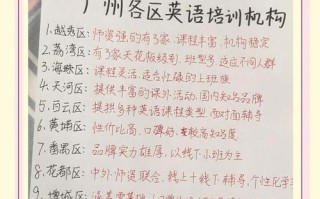 广州各区英语培训机构
1.越秀区: 师资强的有3家,课程丰富,机构稳定
2.荔湾区: 有3家天花板级别,班型多,适应不同人群
3.海珠区: 课程灵活,适合忙碌的上班族
4.天河区: 提供丰富的课外活动,国内知名品牌
5.白云区: 提供多种英语课程类型,面对面辅导
6.黄埔区: 性价比高,口碑好,较高知名度
7.番禺区: 品牌实力雄厚,以线下小班为主
8.花都区: 中外师资联合,线上+线下辅导,个性化学
9.增城区: